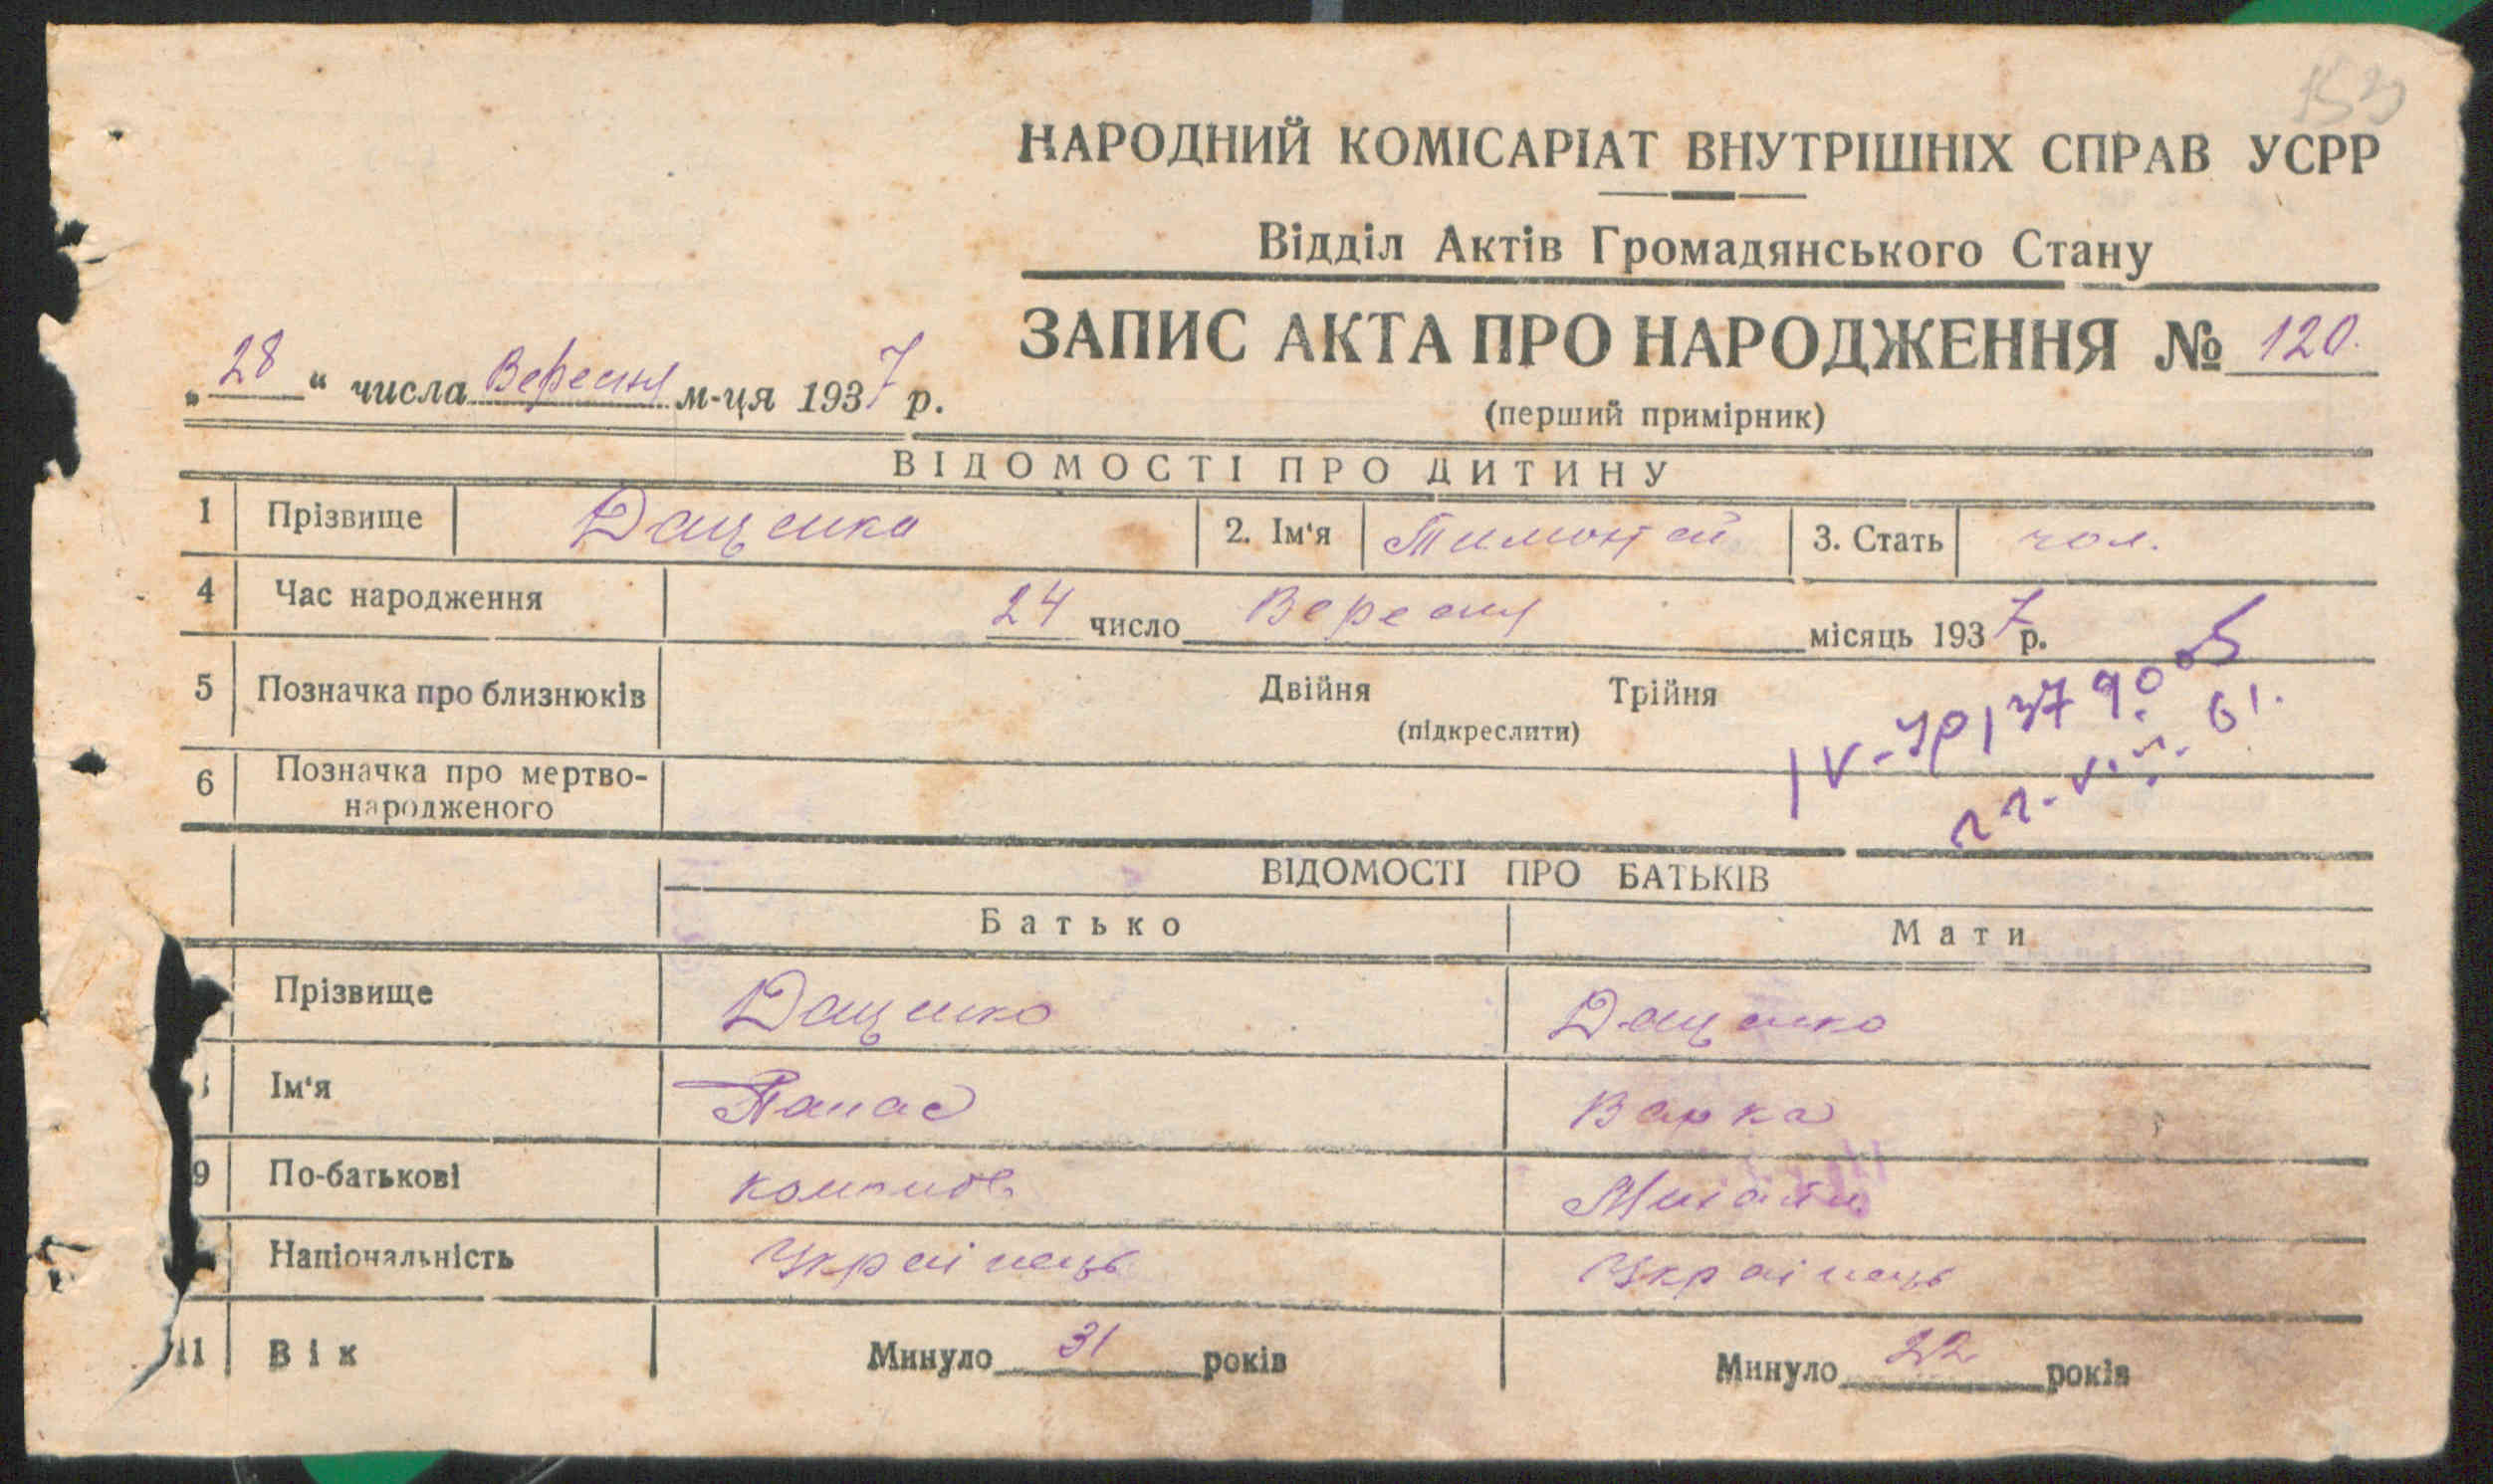 НАРОДНИЙ КОМІСАРІАТ ВНУТРІШНІХ СПРАВ УСРР
Відділ Актів Громадянського Стану
ЗАПИС АКТА ПРО НАРОДЖЕННЯ № 120.
„28“ числа Вересня м-ця 1937 р.
(перший примірник)
ВІДОМОСТІ ПРО ДИТИНУ
1 Прізвище Даценко 2. Ім'я Тимофей 3. Стать чол.
4 Час народження 24 число Вересня місяць 1937 р.
5 Позначка про близнюків Двійня Трійня
(підкреслити)
6 Позначка про мертво-
народженого
ВІДОМОСТІ ПРО БАТЬКІВ
Батько Мати
Прізвище Даценко Даценко
Ім'я Панас Варка
9 По-батькові
Національність Українець Українець
11 Вік Минуло 31 років Минуло 22 років